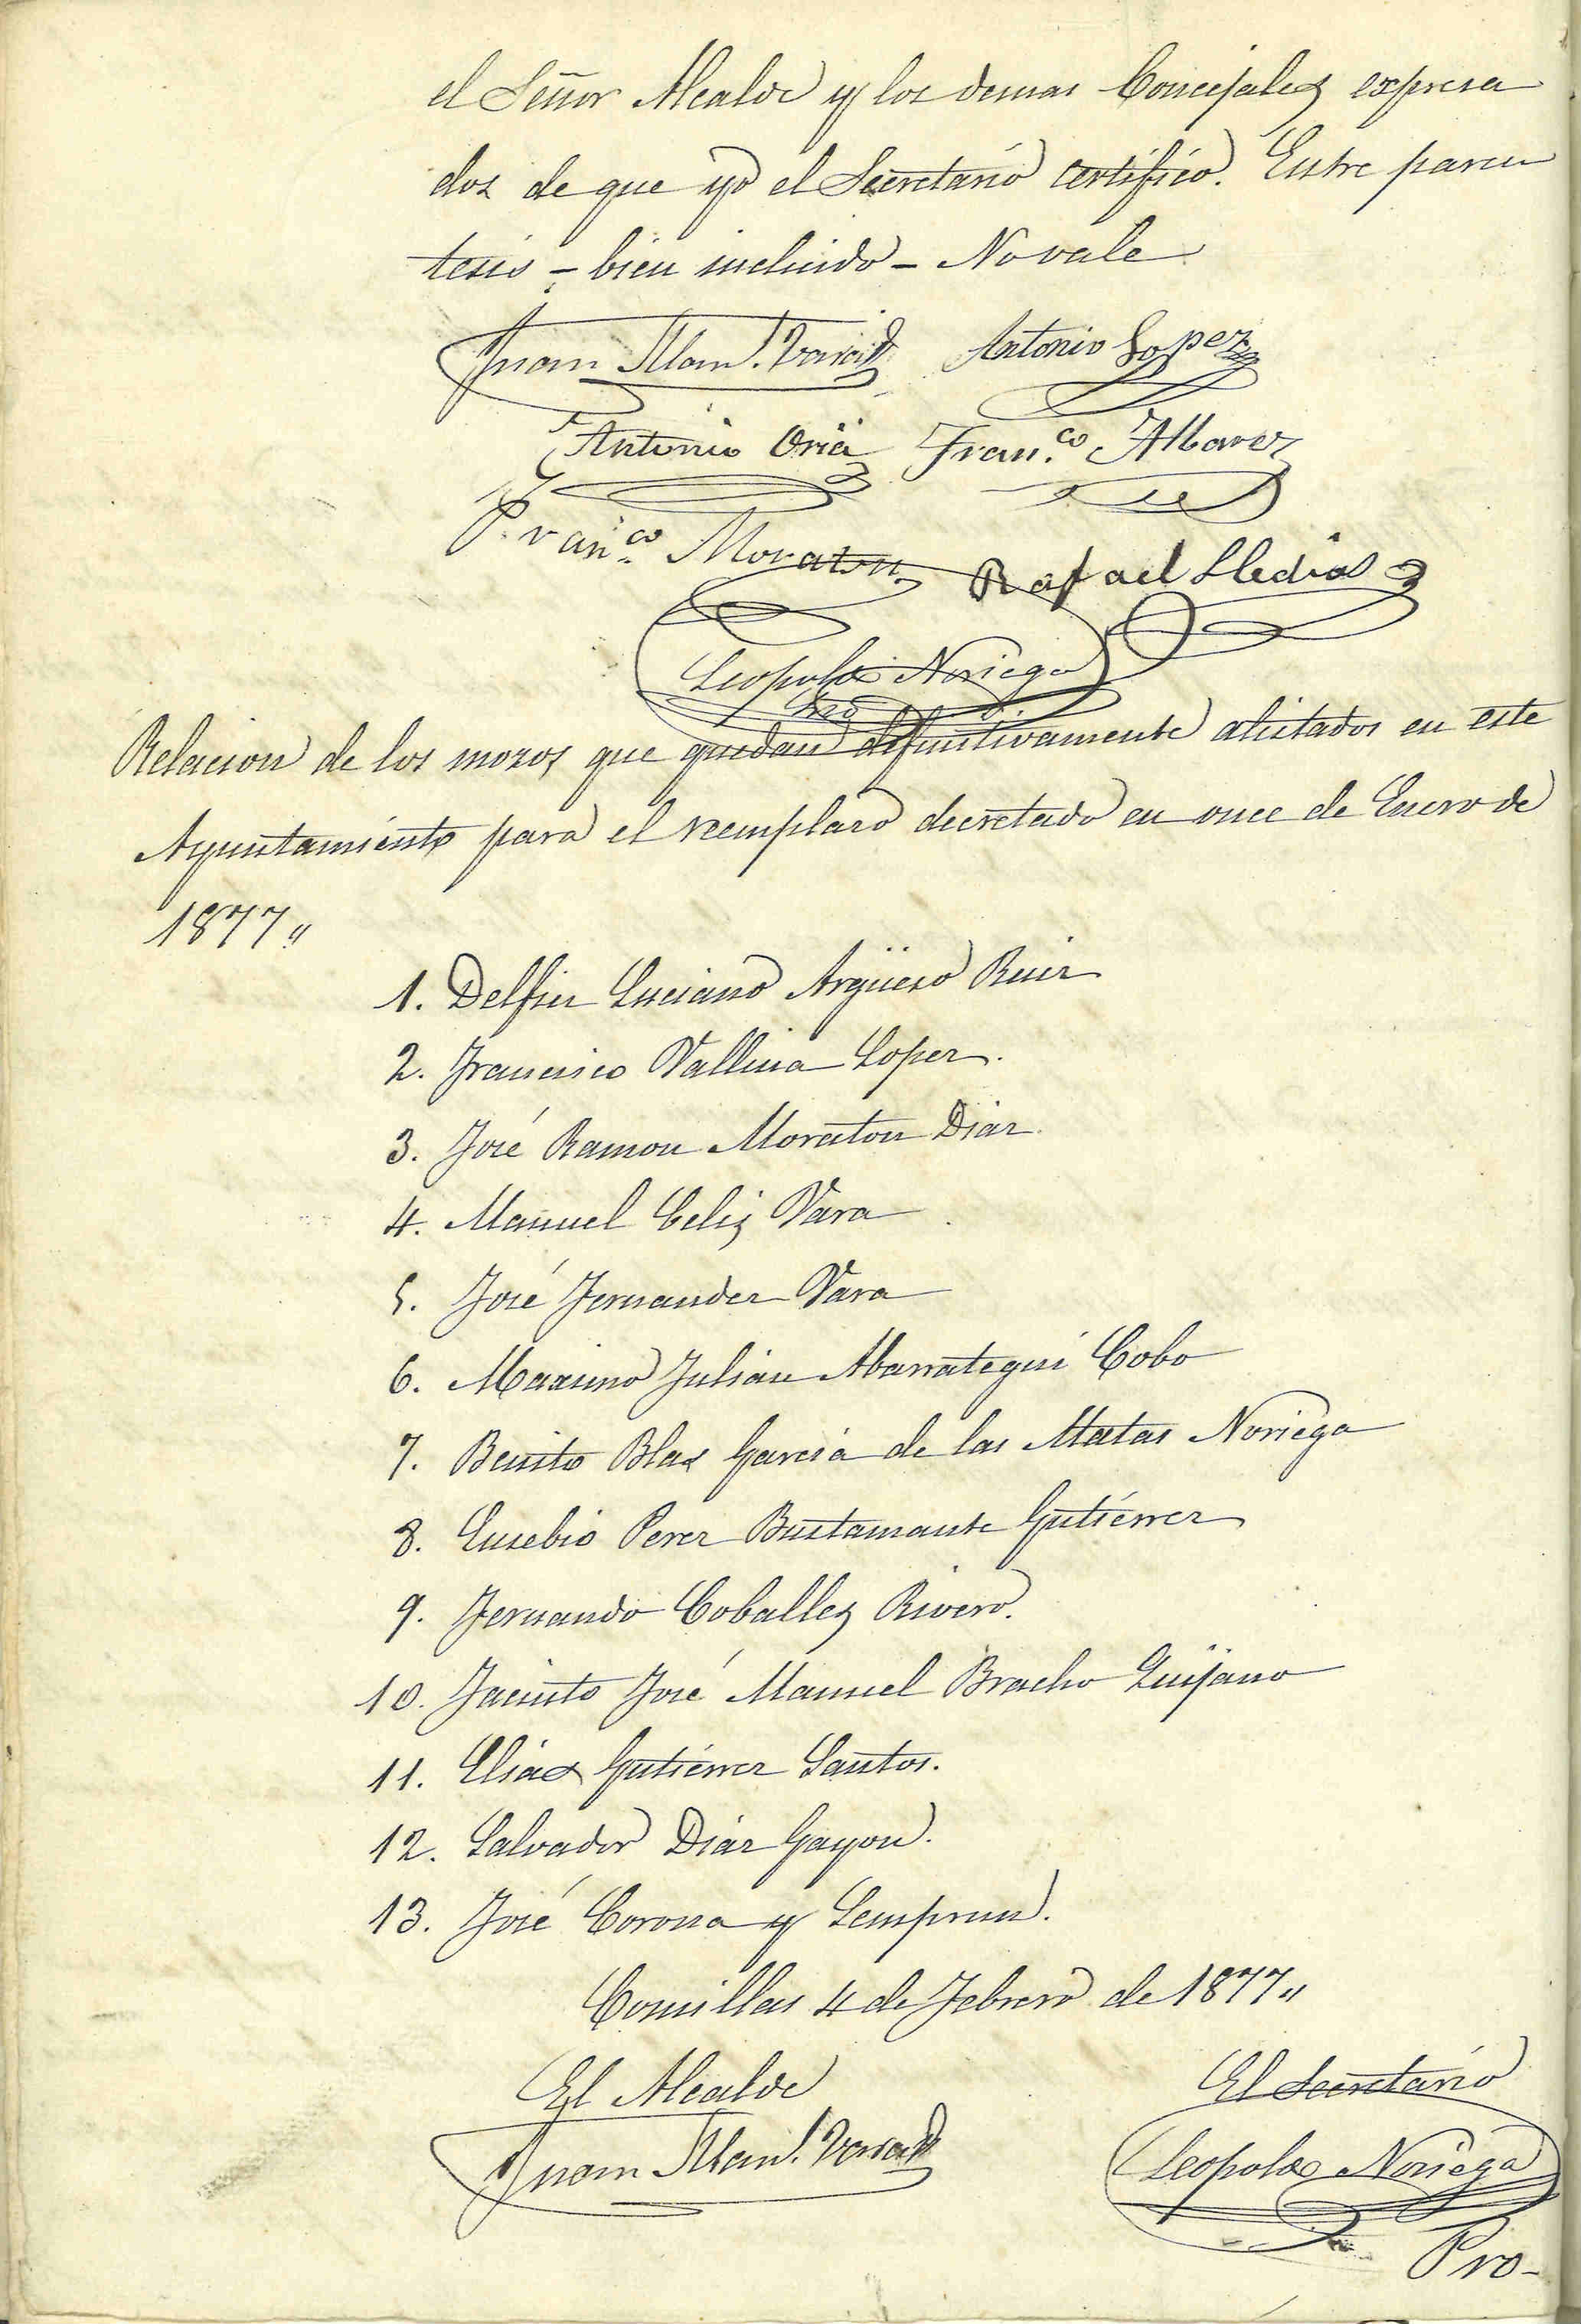 el Señor Alcalde y los demas Concejales expresa
dos de que yo el Secretario certifico. Entre paren
tesis - bien incluido - No vale
Juan Man.l Antonio Lopez
Antonio Oria Fran.co Alvarez
Fran.co Moraton Rafael Lledias
Leopoldo Noriega
Srio
Relacion de los mozos que quedan definitivamente alistados en este
Ayuntamiento para el reemplazo decretado en once de Enero de
1877"
1. Delfin Luciano Argüeso Ruiz
2. Francisco Vallina Lopez.
3. José Ramon Moraton Diaz.
4. Manuel Celis Vara
5. José Fernandez Vara
6. Maximo Julian Abarrategui Cobo
7. Benito Blas Garcia de las Matas Noriega
8. Eusebio Perez Bustamante Gutiérrez
9. Fernando Coballes Rivero.
10. Jacinto José Manuel Bracho Quijano
11. Elias Gutiérrez Santos.
12. Salvador Diaz Gayon.
13. José Corona y Semprun.
Comillas 4 de Febrero de 1877"
El Alcalde El Secretario
Juan Man.l Leopoldo Noriega
Pro-